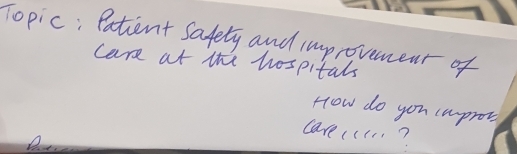 Topic: Patient Safety and improvement of
care at the hospitals
How do you improve
care,,,,,.?